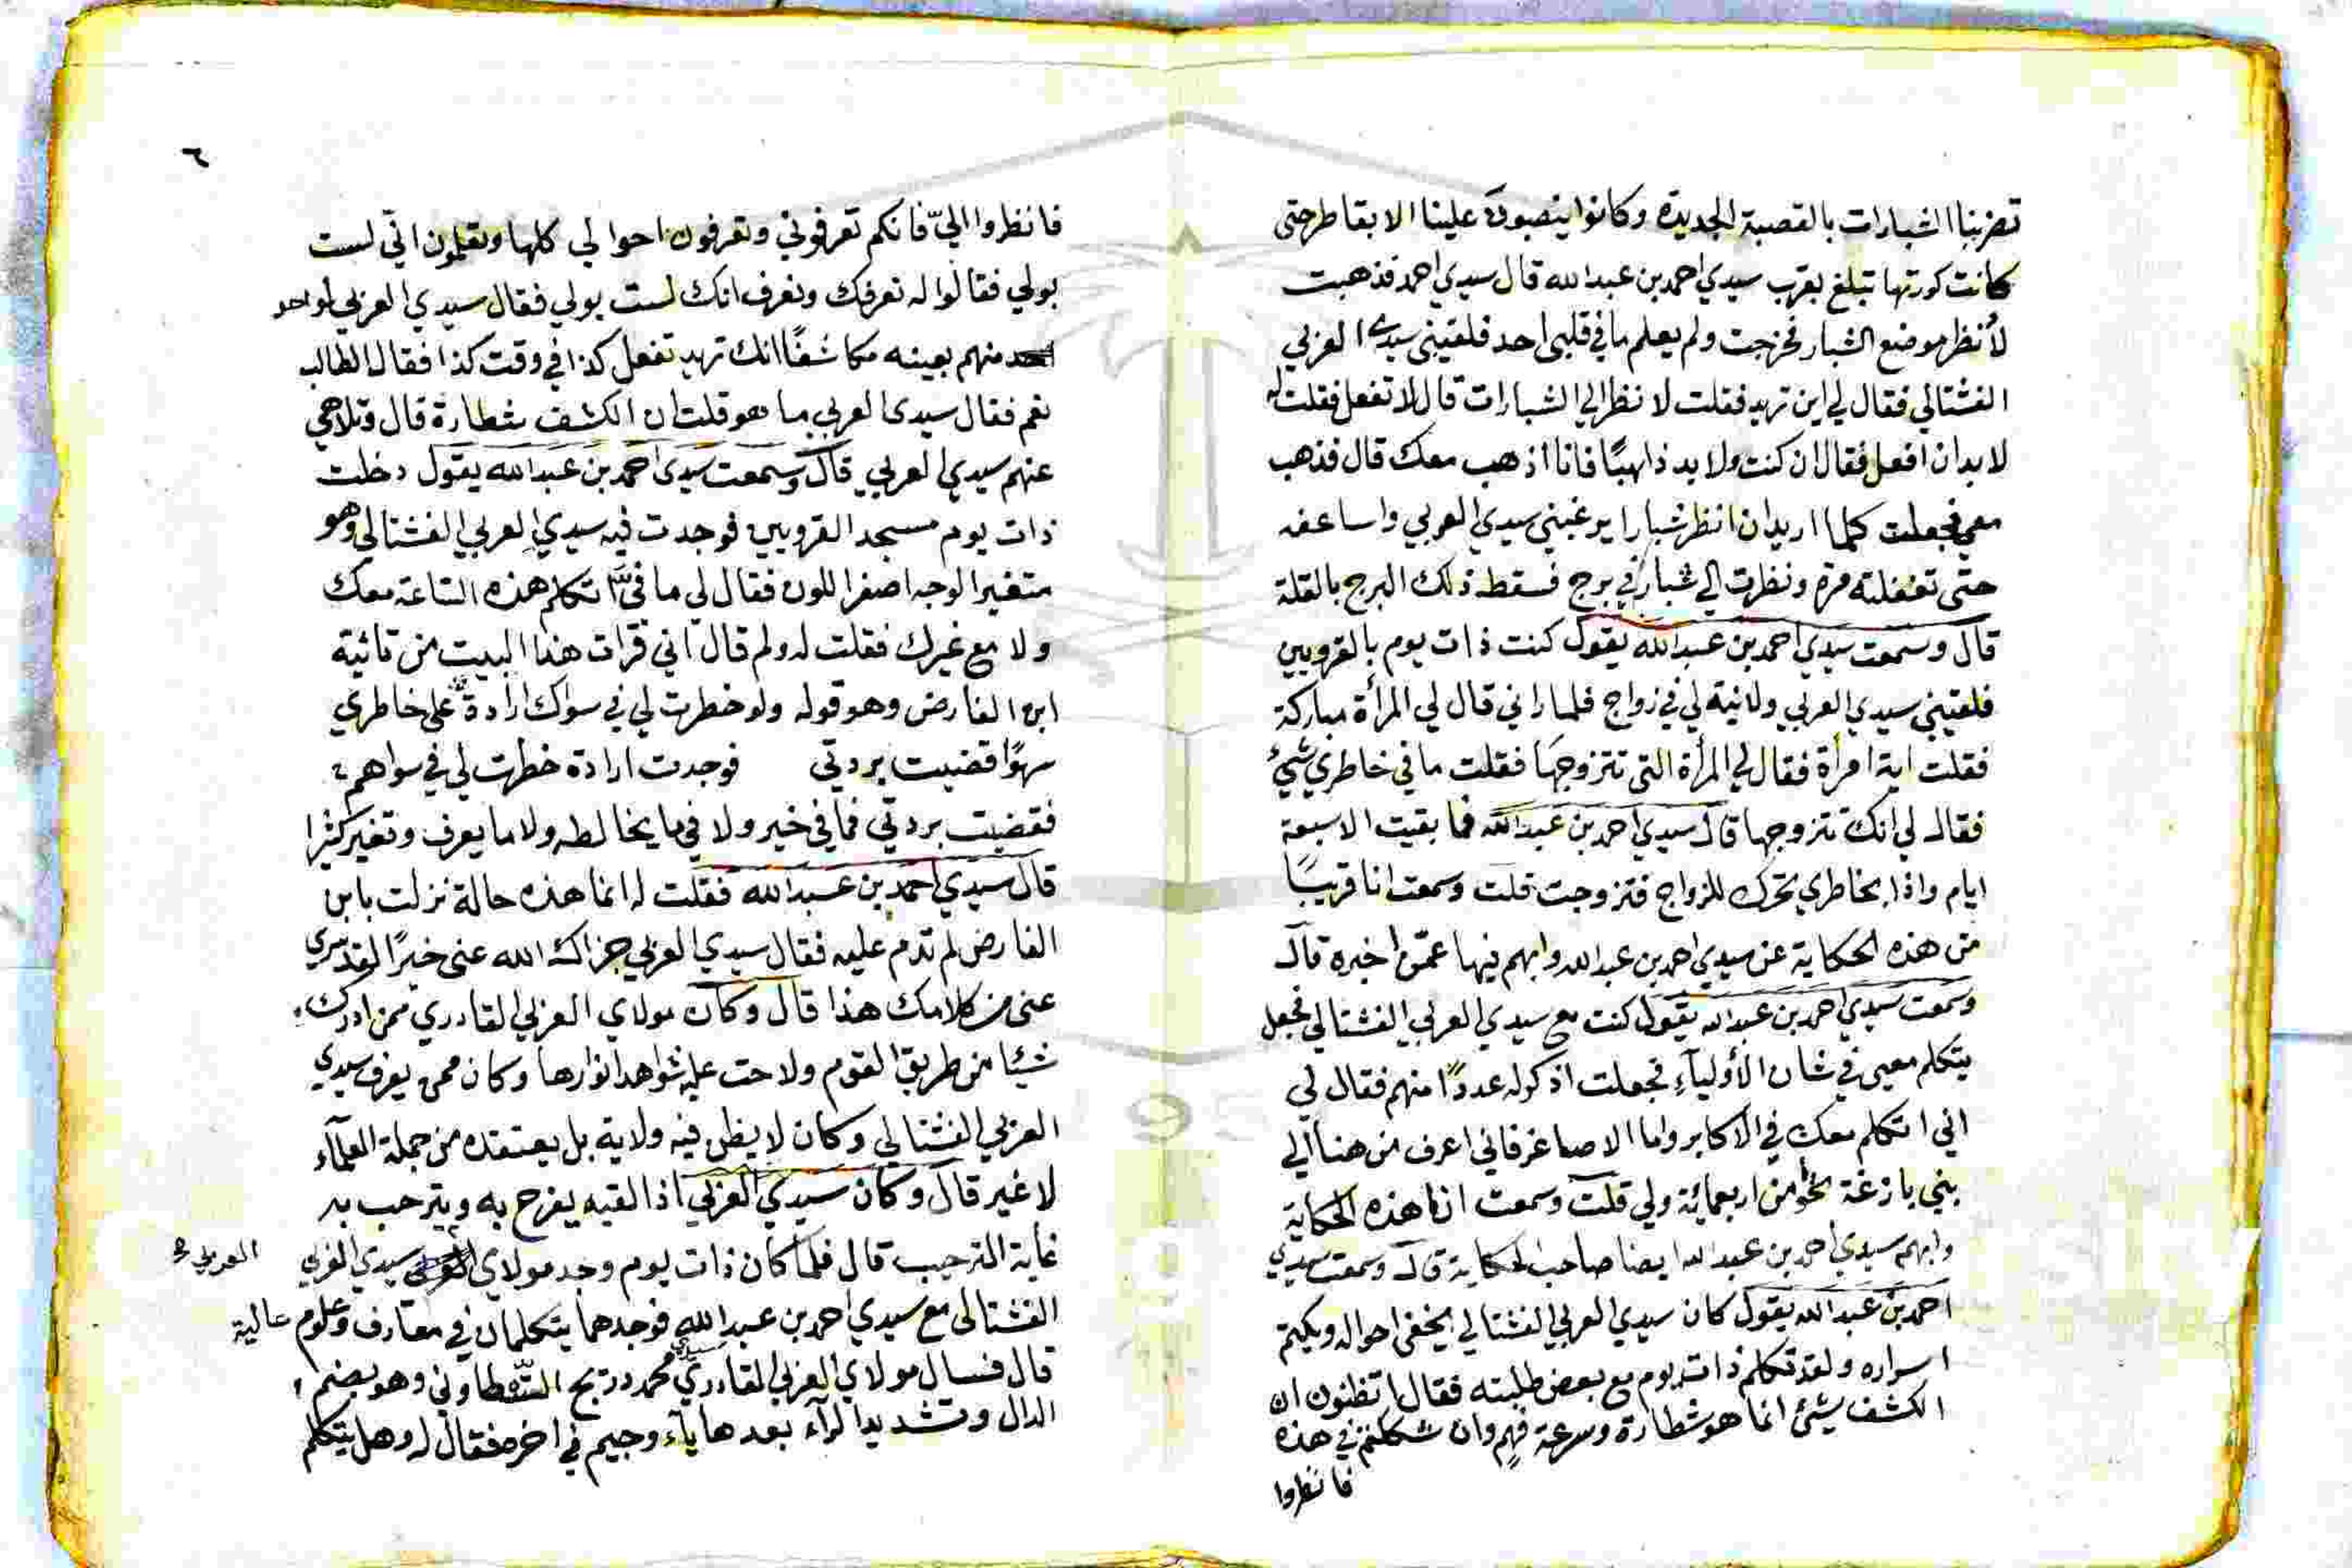 تضربنا الشبارات بالقصبة الجديدة وكانوا ينصبون علينا الابقا طرحتى
كانت كورتها تبلغ بقرب سيدي احمد بن عبد الله قال سيدي احمد فذهبت
لأنظر موضع الشبار فخرجت ولم يعلم ما في قلبى احد فلقينى سيدى العربي
الفشتالي فقال لي اين تريد فقلت لانظر الي الشبارات قال لا تفعل فقلت له
لا بد ان افعل فقال ان كنت ولا بد ذاهبًا فانا اذهب معك قال فذهب
معي فجعلت كلما اريد ان انظر شبارا يرغبني سيدي العربي واساعفه
حتى تغفلته مرة ونظرت الي شبار في برج فسقط ذلك البرج بالقلة
قال وسمعت سيدي احمد بن عبد الله يقول كنت ذات يوم بالقرويين
فلقيني سيدي العربي ولا نية لي في زواج فلما راني قال لي المرأة مباركة
فقلت اية امرأة فقال لي المرأة التي تتزوجها فقلت ما في خاطري شيئ
فقال لي انك تتزوجها قال سيدي احمد بن عبد الله فما بقيت الا سبعة
ايام واذا بخاطري تحرك للزواج فتزوجت قلت وسمعت انا قريبًا
من هذه الحكاية عن سيدي احمد بن عبد الله وابهم فيها عمّن اخبره قال
وسمعت سيدي احمد بن عبد الله يقول كنت مع سيدي العربي الفشتالي فجعل
يتكلم معي في شان الأوليآء فجعلت اذكر له عددًا منهم فقال لي
اني اتكلم معك في الاكابر واما الاصاغر فاني اعرف من هنا الي
بني يازغة نحوا من اربعمائة ولي قلت وسمعت انا هذه الحكاية
وابهم سيدي احمد بن عبد الله ايضا صاحب الحكاية قال وسمعت سيدي
احمد بن عبد الله يقول كان سيدي العربي الفشتالي يخفي احواله ويكتم
اسراره ولقد تكلم ذات يوم مع بعض طلبته فقال اتظنون ان
الكشف شيئ انما هو شطارة وسرعة فهم وان شككتم في هذه
فانظروا
٦
فانظروا اليّ فانكم تعرفوني وتعرفون احوالي كلها وتعلمون انّي لست
بولي فقالوا له نعرفك ونعرف انك لست بولي فقال سيدي العربي لواحد
منهم بعينه مكاشفًا انك تريد تفعل كذا في وقت كذا فقال الطالب
نعم فقال سيدى العربي ما هو قلت ان الكشف شطارة قال وتلاهي
عنهم سيدي العربي قال وسمعت سيدى احمد بن عبد الله يقول دخلت
ذات يوم مسجد القرويين فوجدت فيه سيدي العربي الفشتالي وهو
متغير الوجه اصفر اللون فقال لي ما فيّ اتكلم هذه الساعة معك
ولا مع غيرك فقلت له ولم قال اني قرات هذا البيت من تائية
ابن الفارض وهو قوله ولو خطرت لي في سواك ارادة على خاطري
سهوًا قضيت بردتي فوجدت ارادة خطرت لي في سواهم
فقضيت بردتي فما في خير ولا في ما يخالطه ولا ما يعرف وتغير كثيرا
قال سيدي احمد بن عبد الله فقلت له انما هذه حالة نزلت بابن
الفارض لم تدم عليه فقال سيدي العربي جزاك الله عني خيرًا لقد سري
عنى من كلامك هذا قال وكان مولاي العربي القادري ممن ادرك
شيئا من طريق القوم ولاحت عليه شواهد انوارها وكان ممن يعرف سيدي
العربي الفشتالي وكان لا يظن فيه ولاية بل يعتقده من جملة العلمآء
لا غير قال وكان سيدي العربي اذا لقيه يفرح به ويترحب به
غاية الترحيب قال فلما كان ذات يوم وجد مولاي العربي سيدي العربي
الفشتالي مع سيدي احمد بن عبد الله فوجدهما يتكلمان في معارف وعلوم عالية
قال فسال مولاي العربي القادري سيدي محمد دريج التطاوني وهو بضم
الدال وتشديد الرآء بعدها يآء وجيم في اخره فقال له وهل يتكلم